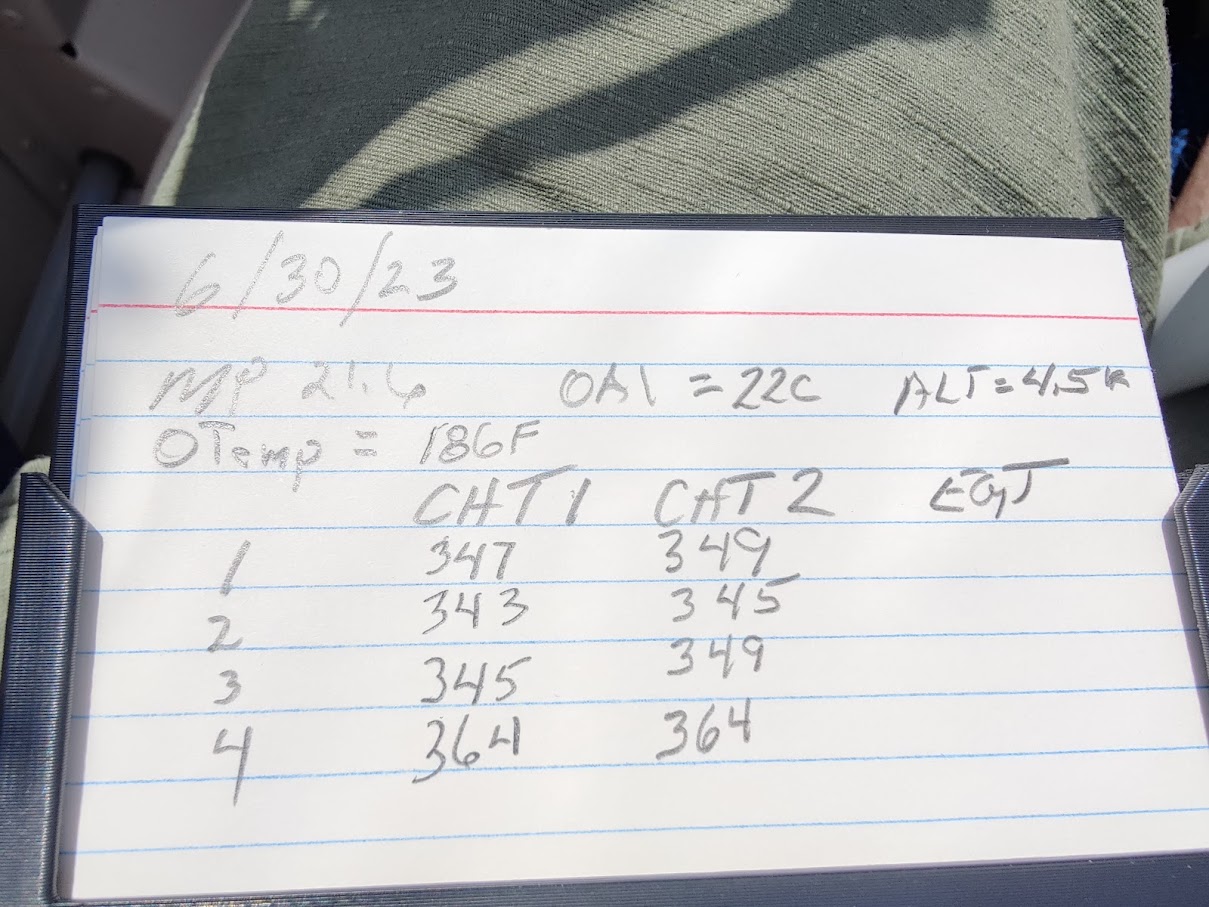 6/30/23
MP 21.6 OAT = 22C ALT = 4.5K
OTemp = 186F
CHT 1 CHT 2 EGT
1 347 349
2 343 345
3 345 349
4 364 364